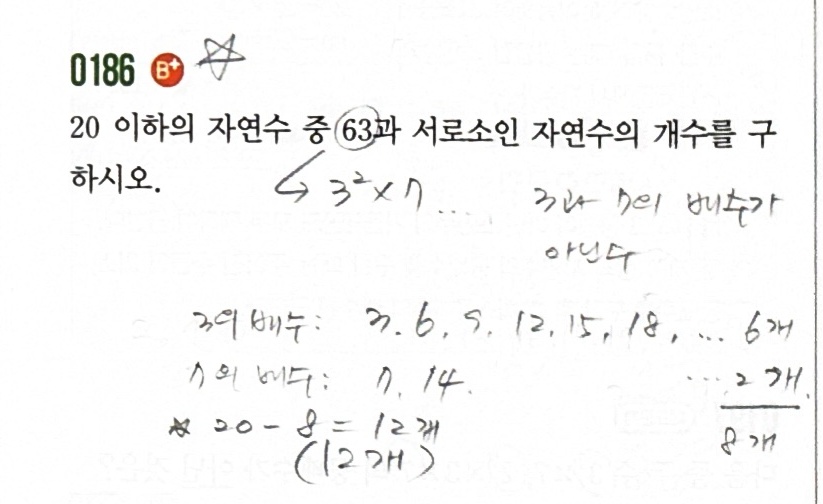 0186 B+
20 이하의 자연수 중 63과 서로소인 자연수의 개수를 구
하시오.
→ 3² × 7 ....
3과 7의 배수가
아닌수
3의 배수: 3. 6. 9. 12, 15, 18, ... 6개
7의 배수: 7. 14. ... 2개.
8개
* 20 - 8 = 12개
(12개)